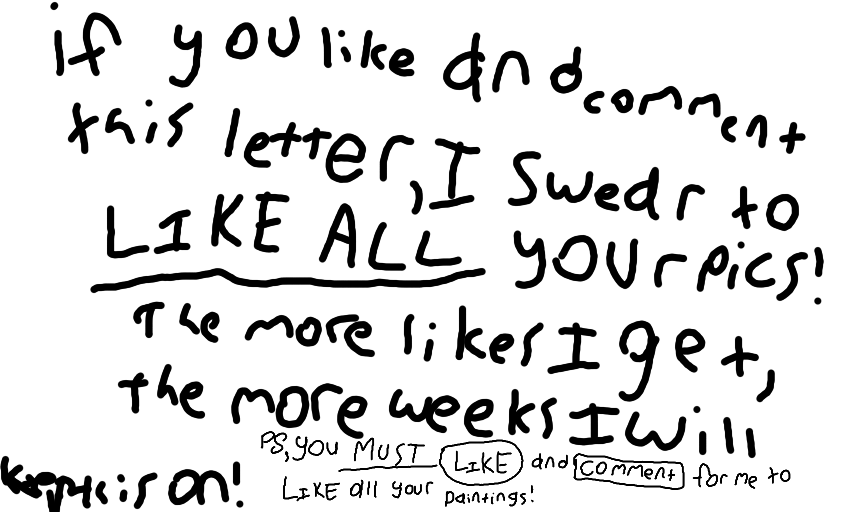 if you like and comment
this letter, I swear to
LIKE ALL your pics!
The more likes I get,
the more weeks I will
keep this on!
PS, you MUST LIKE and comment for me to
LIKE all your paintings!